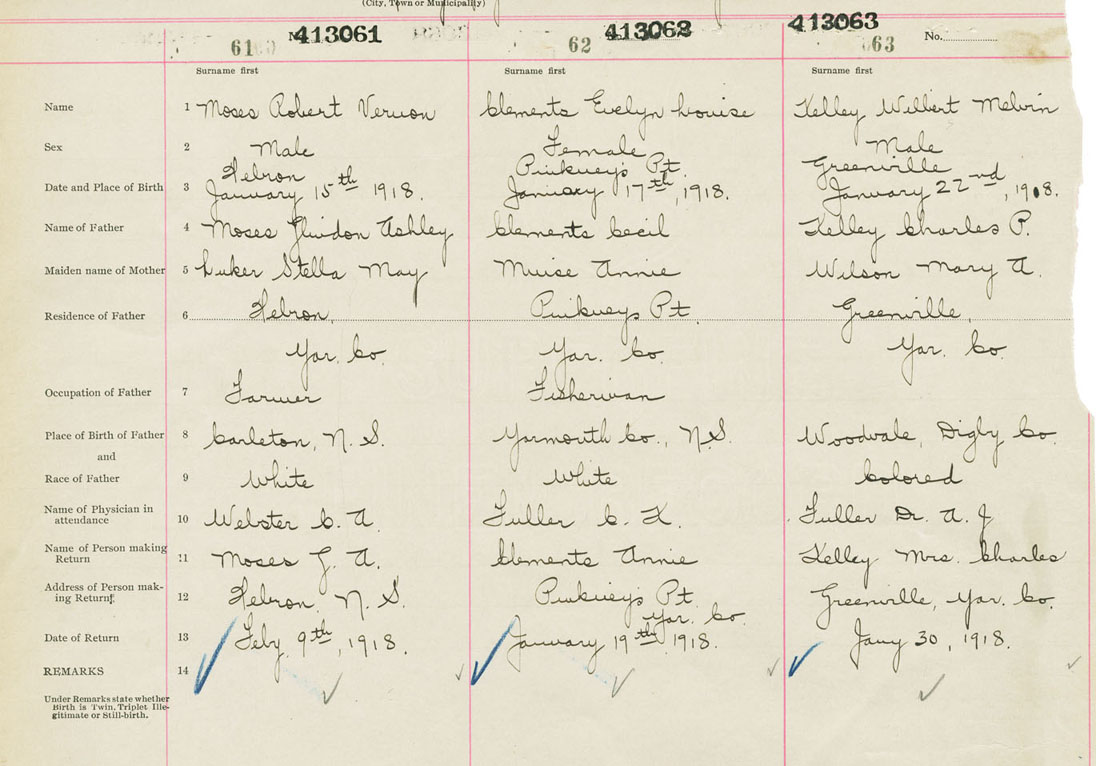 (City, Town or Municipality)
61 413061 62 413062 413063 63 No.
Surname first Surname first Surname first
Name 1 Moses Robert Vernon Clements Evelyn Louise Kelley Wilbert Melvin
Sex 2 Male Female Male
Hebron Pinkneys Pt. Greenville
Date and Place of Birth 3 January 15th 1918. January 17th, 1918. January 22nd, 1918.
Name of Father 4 Moses Ashley Clements Cecil Kelley Charles P.
Maiden name of Mother 5 Luker Stella May Muise Annie Wilson Mary A.
Residence of Father 6 Hebron, Pinkneys Pt. Greenville,
Yar. Co. Yar. Co. Yar. Co.
Occupation of Father 7 Farmer Fisherman
Place of Birth of Father 8 Carleton, N. S. Yarmouth Co., N.S. Woodvale, Digby Co.
and
Race of Father 9 White White Colored
Name of Physician in
attendance 10 Webster C. A. Fuller C. K. Fuller Dr. A. J
Name of Person making
Return 11 Moses G. A. Clements Annie Kelley Mrs. Charles
Address of Person mak-
ing Return 12 Hebron, N. S. Pinkneys Pt. Yar. Co. Greenville, Yar. Co.
Date of Return 13 Feby. 9th, 1918. January 19th, 1918. Jany 30, 1918.
REMARKS 14
Under Remarks state whether
Birth is Twin, Triplet Ille-
gitimate or Still-birth.